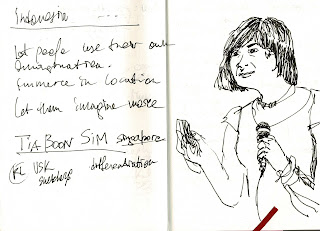 Indonesia ....
Let people use their own
imagination.
Immerse in location
Let them imagine more
TIA BOON SIM Singapore
KL USK differentiation